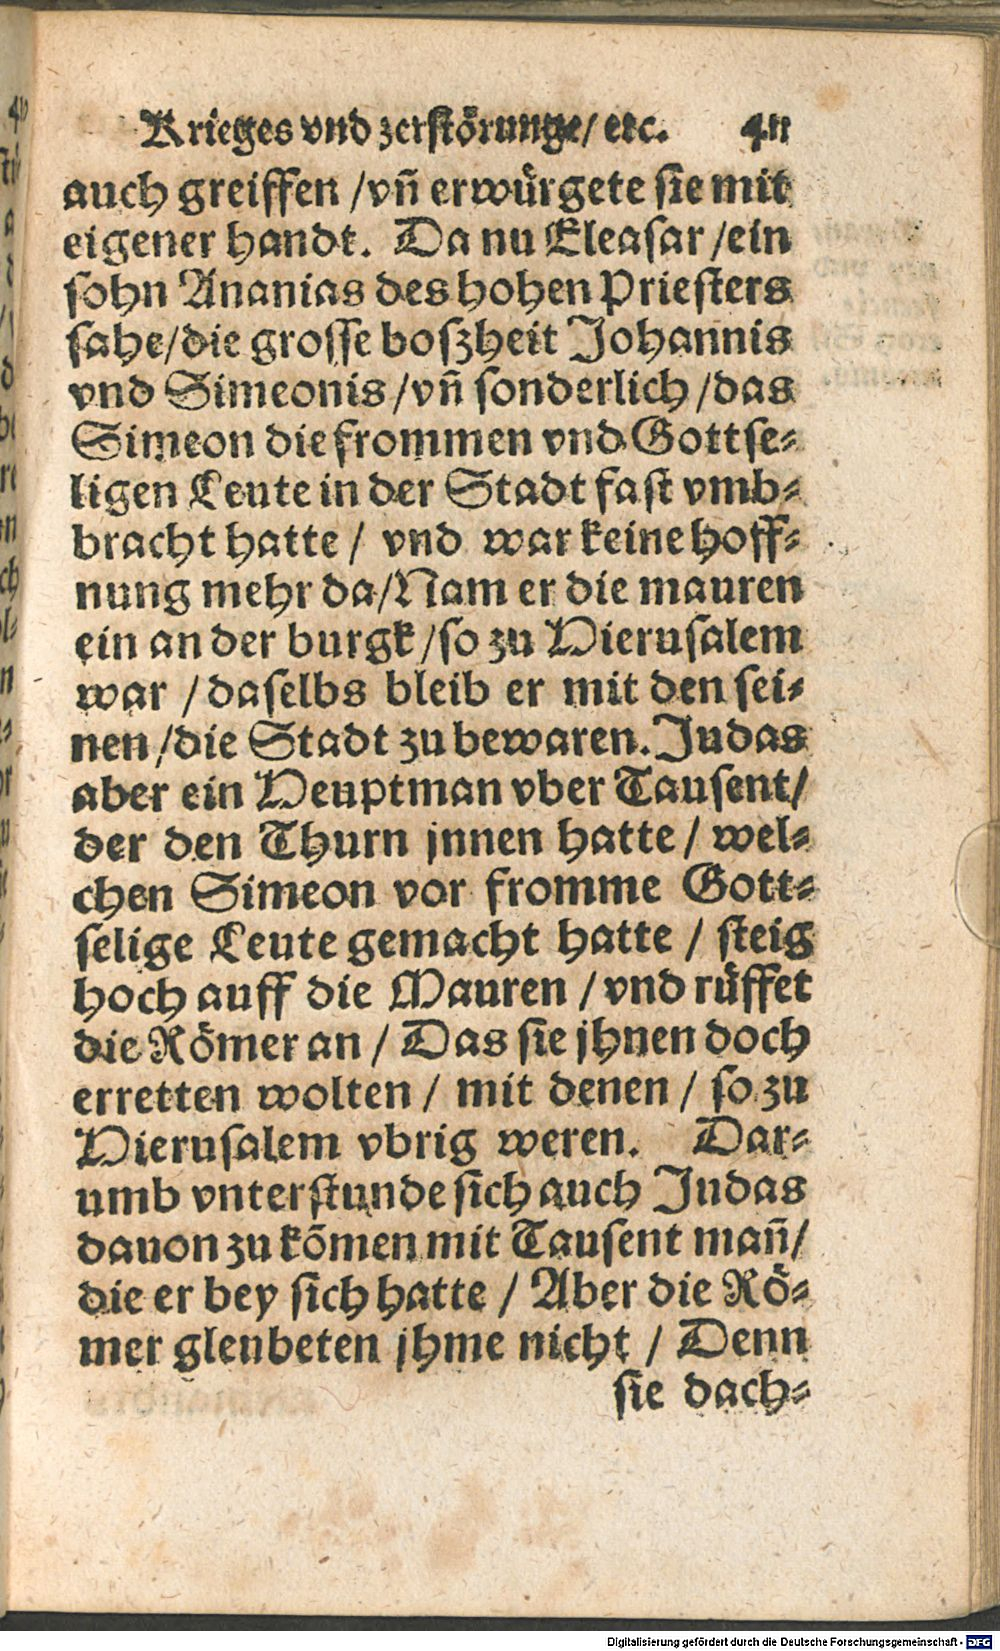 Krieges vnd zerstörunge/ etc.
auch greiffen /vn̄ erwürgete sie mit
eigener handt. Da nu Eleasar /ein
sohn Ananias des hohen Priesters
sahe/die grosse boszheit Johannis
vnd Simeonis /vn̄ sonderlich /das
Simeon die frommen vnd Gottse⸗
ligen Leute in der Stadt fast vmb⸗
bracht hatte / vnd war keine hoff⸗
nung mehr da/Nam er die mauren
ein an der burgk /so zu Hierusalem
war / daselbs bleib er mit den sei⸗
nen /die Stadt zu bewaren. Judas
aber ein Heuptman vber Tausent/
der den Thurn jnnen hatte / wel⸗
chen Simeon vor fromme Gott⸗
selige Leute gemacht hatte / steig
hoch auff die Mauren / vnd rüffet
die Römer an / Das sie jhnen doch
erretten wolten / mit denen / so zu
Hierusalem vbrig weren. Dar⸗
umb vnterstunde sich auch Judas
dauon zu kōmen mit Tausent man̄/
die er bey sich hatte / Aber die Rö⸗
mer gleubeten jhme nicht / Denn
sie dach⸗
Digitalisierung gefördert durch die Deutsche Forschungsgemeinschaft - DFG